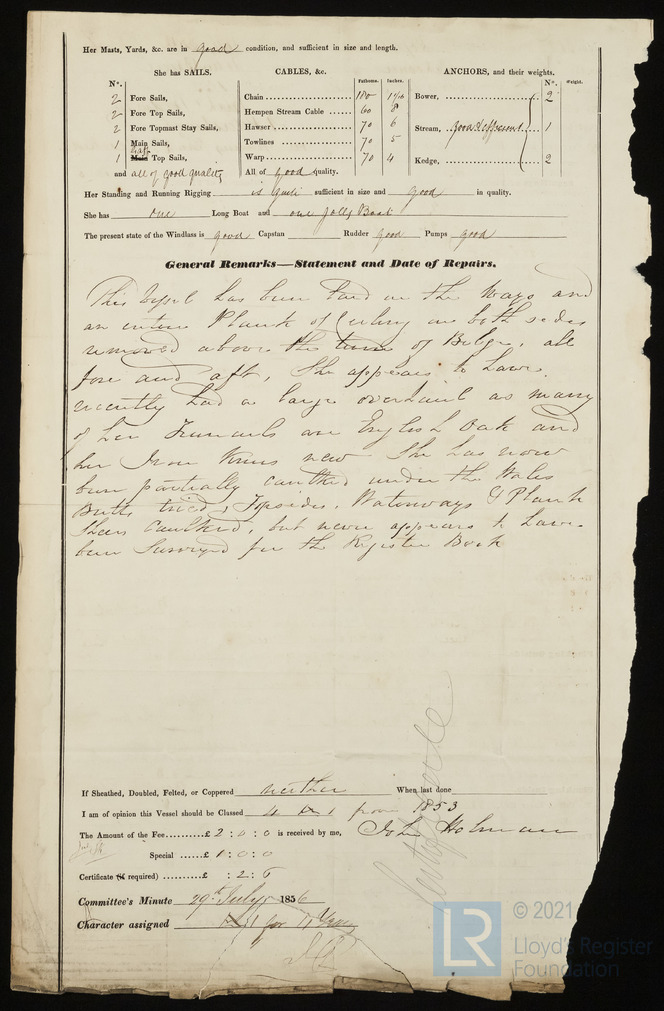 Her Masts, Yards, &c. are in good condition, and sufficient in size and length.
She has SAILS.
CABLES, &c.
Fathoms. Inches.
ANCHORS, and their weights.
Nº. Weight.
Nº.
2 Fore Sails,
2 Fore Top Sails,
2 Fore Topmast Stay Sails,
1 Main Sails,
1 Main Gaff Top Sails,
and all of good quality
Chain
Hempen Stream Cable 60 8
Hawser 70 6
Towlines 70 5
Warp 70 4
All of good quality.
Bower, 2
Stream, good & efficient 1
Kedge, 2
Her Standing and Running Rigging is quite sufficient in size and good in quality.
She has one Long Boat and one Jolly Boat
The present state of the Windlass is good Capstan Rudder good Pumps good
General Remarks—Statement and Date of Repairs.
This Vessel has been laid on the Ways and
an entire Plank of Ceiling on both sides
removed above the turn of Bilge, all
fore and aft, She appears to have
recently had a large overhaul as many
of her Trenails are English Oak and
her Iron Knees new. She has now
been partially caulked under the Wales
Butts tried, Topsides, Waterways & Plank
Sheers caulked, but never appears to have
been Surveyed for the Register Book
If Sheathed, Doubled, Felted, or Coppered neither When last done
I am of opinion this Vessel should be Classed from 1853
The Amount of the Fee £ 2 : 0 : 0 is received by me, John Holman
Special £ : 0 : 0
Certificate (if required) £ : 2 : 6
Committee's Minute 29th July 1856
Character assigned for 4 Years
© 2021
LR
Lloyd's Register
Foundation